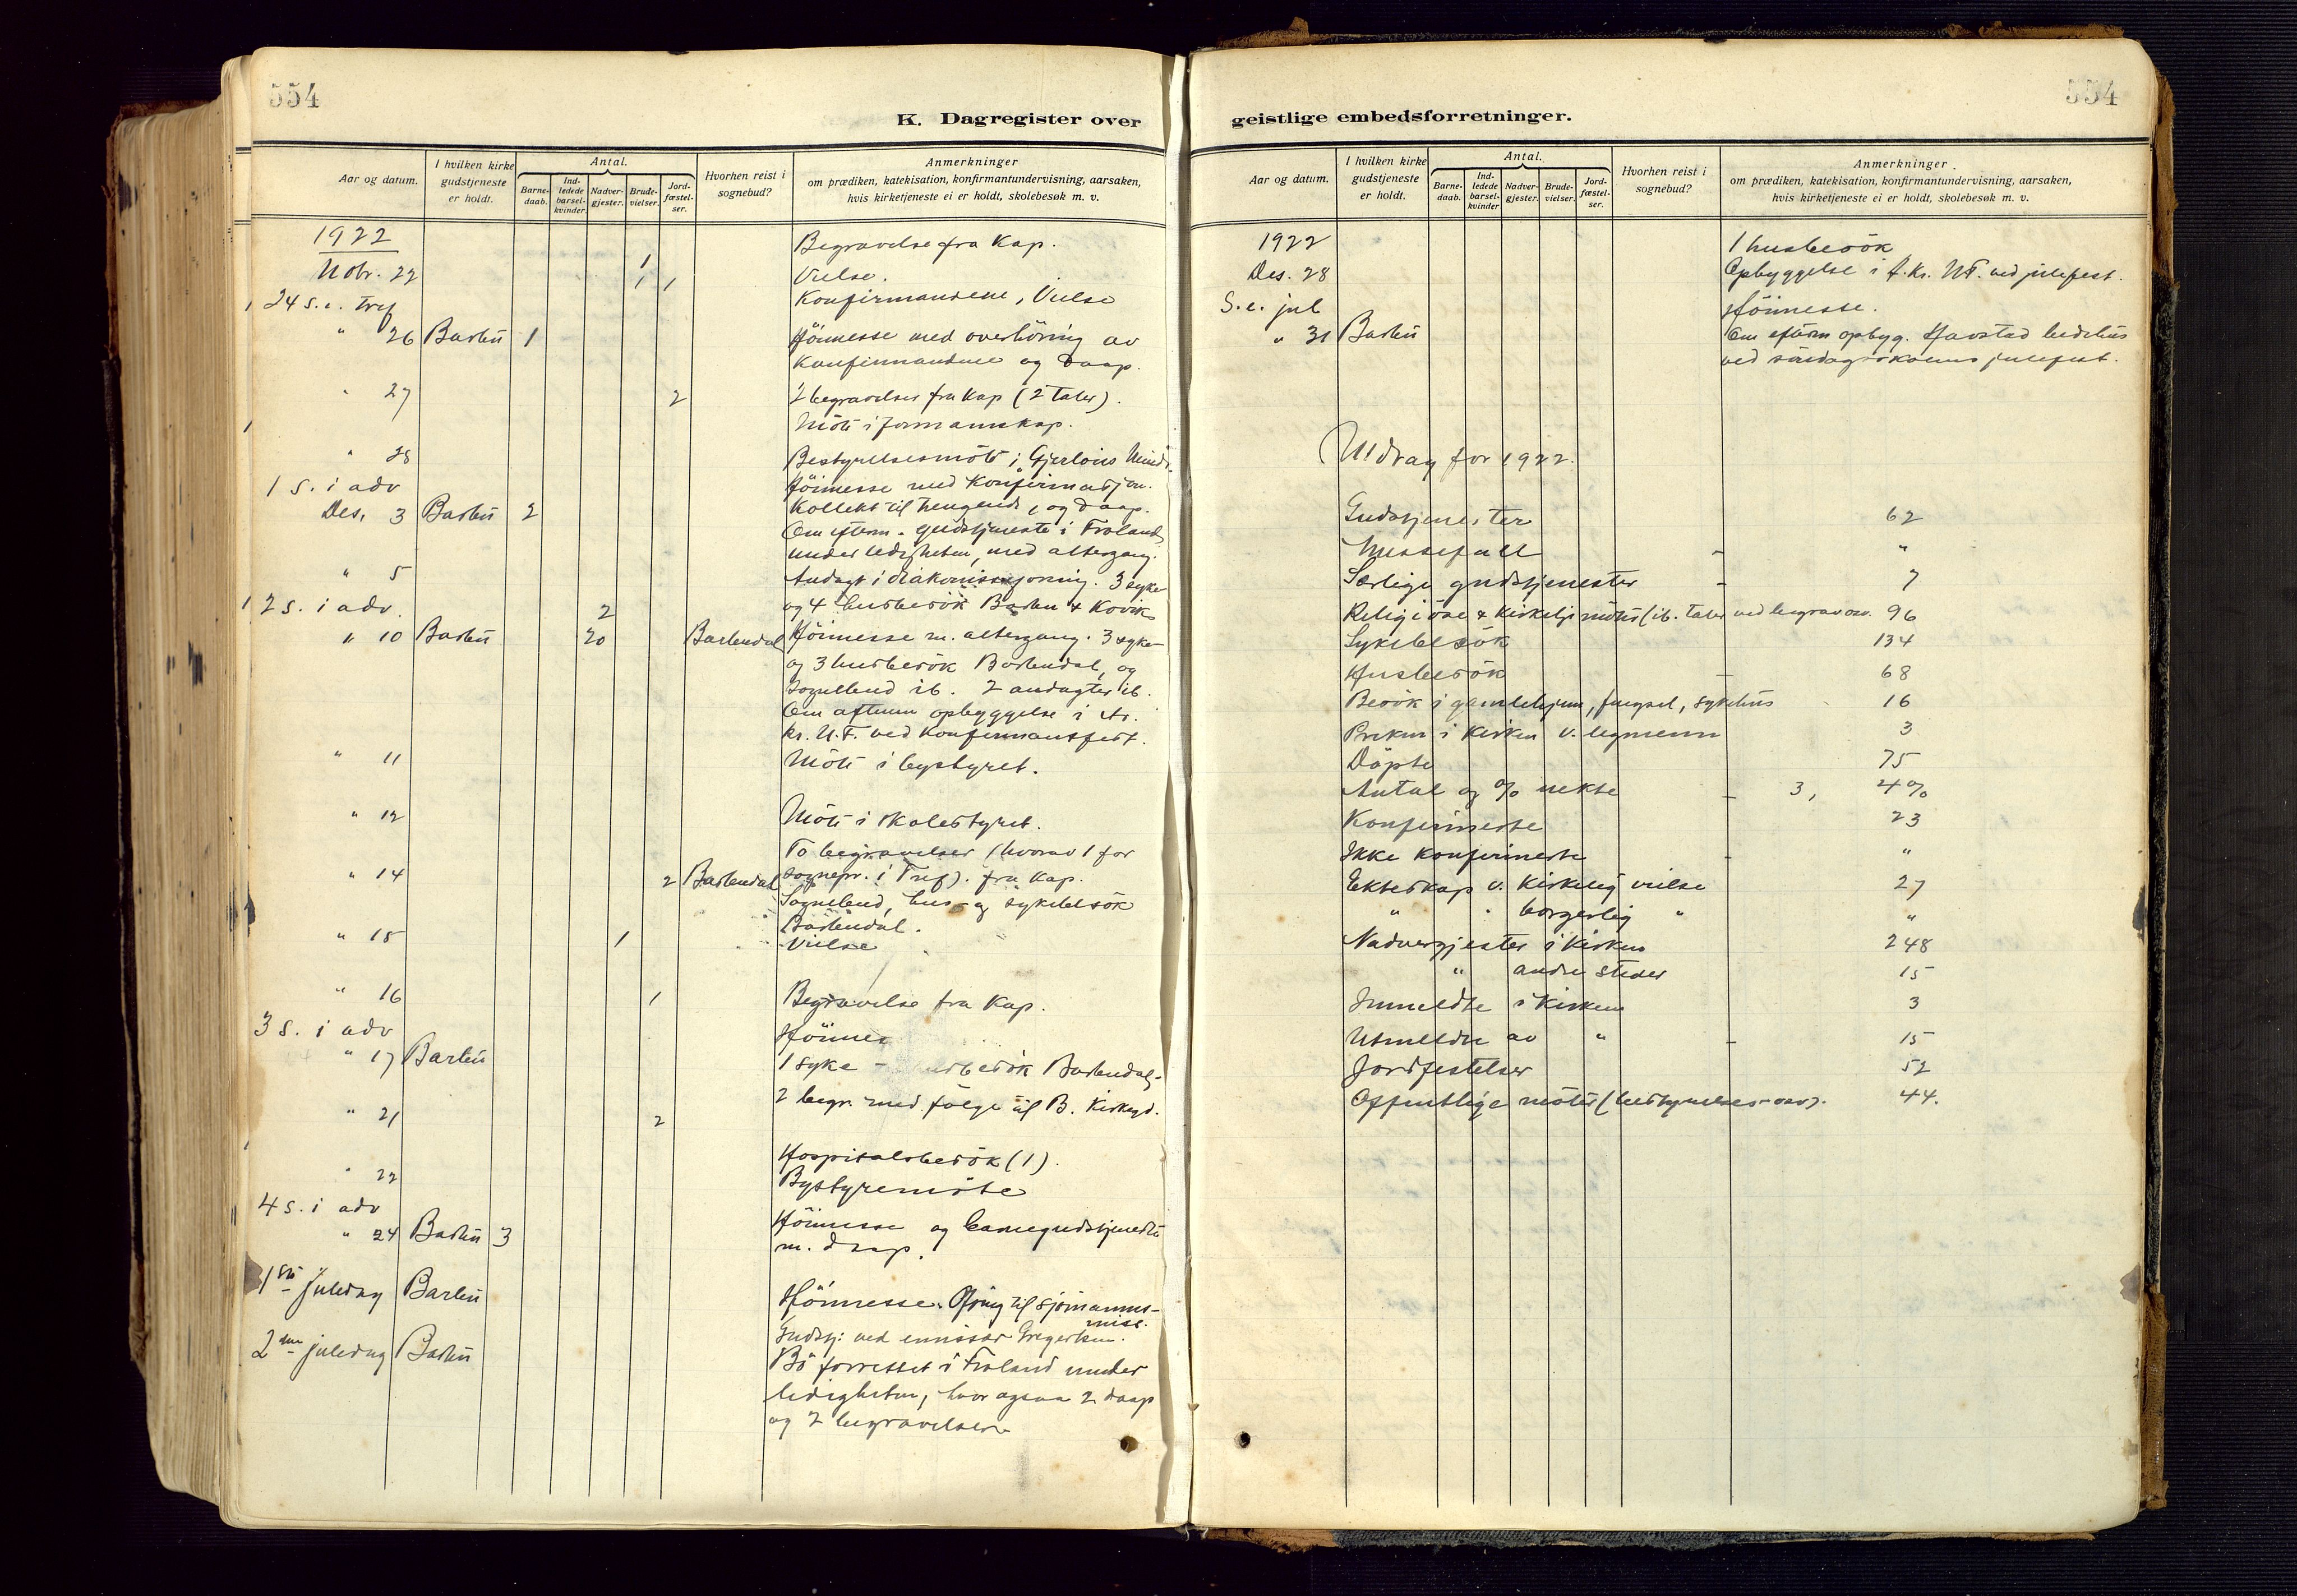 554
K. Dagregister over
Aar og datum.
I hvilken kirke gudstjeneste er holdt.
Antal.
Barnedaab.
Indledede barselkvinder.
Nadvergjester.
Brudevielser.
Jordfæstelser.
Hvorhen reist i sognebud?
Anmerkninger
om prædiken, katekisation, konfirmantundervisning, aarsaken,
hvis kirketjeneste ei er holdt, skolebesøk m. v.
1922
Begravelse fra Kap.
Nobr. 22 1 Vielse.
24 s. e. tref 1 1 Konfirmantene, Vielse
" 26 Barbu 1 Höimesse med overhöring av
Konfirmantene og Daap.
" 27 2 2 begravelser fra Kap (2 taler).
Möte i formannskap.
" 28 Bestyrelsesmöte i Gjerlöis
1 s. i adv Höimesse med Konfirmasjon.
Des. 3 Barbu 2 Kollekt til trengende, og Daap.
Om efterm. gudstjeneste i Froland
under ledigheten, med altergang.
" 5 Andagt i diakonisseforening. 3 syke
2 s. i adv. 2 og 4 husbesök Barbu & Kovik
" 10 Barbu 20 Barbudal Höimesse m. altergang. 3 syke-
og 3 husbesök Barbudal, og
sognebud ib. 2 andagter ib.
Om aftenen opbyggelse i Ar.
kr. U.F. ved Konfirmantfest.
" 11 Möte i bystyret.
" 12 Möte i skolestyret.
To begravelser (hvorav 1 for
" 14 2 Barbudal sognepr. i Tref). fra Kap.
Sognebud, hus- og sykebesök
Barbudal.
" 15 1 Vielse
" 16 1 Begravelse fra Kap.
3 s. i adv Höimes
" 17 Barbu 1 syke - husbesök Barbudal.
" 21 2 2 begr. med fölge til B. Kirkegd.
Hospitalsbesök (1).
" 22 Bystyremöte
4 s. i adv
" 24 Barbu 3 Höimesse og barnegudstjeneste
m. daap.
1ste juledag Barbu Höimesse. Ofring til sjömannsmise.
2den juledag Barbu Gudstj. ved emissær Gregersen.
Bö forrettet i Froland under
ledigheten, hvor ogsaa 2 daap
og 2 begravelser
554
geistlige embedsforretninger.
Aar og datum.
I hvilken kirke gudstjeneste er holdt.
Antal.
Barnedaab.
Indledede barselkvinder
Nadvergjester.
Brudevielser.
Jordfæstelser.
Hvorhen reist i sognebud?
Anmerkninger
om prædiken, katekisation, konfirmantundervisning, aarsaken,
hvis kirketjeneste ei er holdt, skolebesøk m. v.
1922 1 husbesök
Des. 28 Opbyggelse i A. Kr. U.F. ved julefest.
S. e. jul Höimesse.
" 31 Barbu Om efterm opbyg. Havstad bedehus
ved söndagsskolens julefest.
Utdrag for 1922.
Gudstjenester 62
Messefall - "
Særlige gudstjenester - 7
Religiöse & Kirkelige möter (ib. taler ved begrav osv. 96
Sykebesök 134
Husbesök - 68
Besök i gamlehjem, fengsel, sykehus - 16
Preken i Kirken v. legmenn 3
Döpte 75
Antal og % uekte - 3, 4%
Konfirmerte 23
Ikke Konfirmerte - "
Ekteskap v. Kirkelig vielse 27
" " borgerlig " "
Nadvergjester i Kirken 248
" andre steder 15
Innmeldte i Kirken 3
Utmeldte av " - 15
Jordfestelser 52
Offentlige möter (bestyrelses- osv). 44.